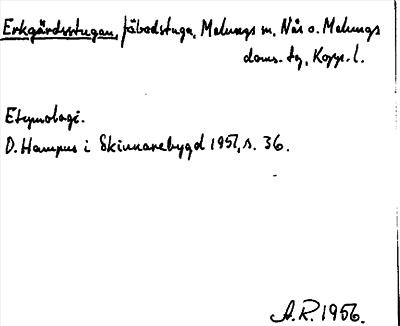 Erkgärdsstugan, fäbodstuga, Malungs sn, Nås o. Malungs
doms. tg, Kopp. l.
Etymologi.
D. Hampus i Skinnarebygd 1951, s. 36.
A.R. 1956.